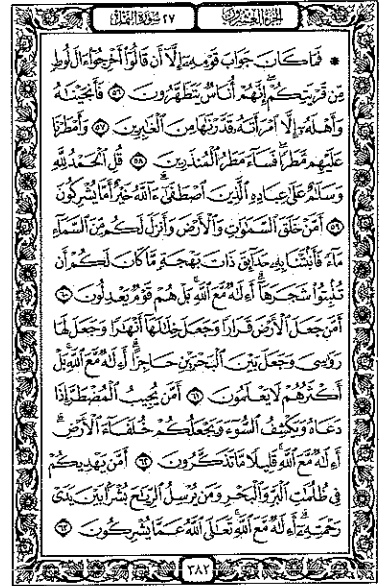 الجزء العشرون ٢٧ سورة النمل
* فَمَا كَانَ جَوَابَ قَوْمِهِۦٓ إِلَّآ أَن قَالُوٓا۟ أَخْرِجُوٓا۟ ءَالَ لُوطٍ
مِّن قَرْيَتِكُمْ إِنَّهُمْ أُنَاسٌ يَتَطَهَّرُونَ ٥٦ فَأَنجَيْنَٰهُ
وَأَهْلَهُۥٓ إِلَّا ٱمْرَأَتَهُۥ قَدَّرْنَٰهَا مِنَ ٱلْغَٰبِرِينَ ٥٧ وَأَمْطَرْنَا
عَلَيْهِم مَّطَرًا فَسَآءَ مَطَرُ ٱلْمُنذَرِينَ ٥٨ قُلِ ٱلْحَمْدُ لِلَّهِ
وَسَلَٰمٌ عَلَىٰ عِبَادِهِ ٱلَّذِينَ ٱصْطَفَىٰٓ ءَآللَّهُ خَيْرٌ أَمَّا يُشْرِكُونَ
٥٩ أَمَّنْ خَلَقَ ٱلسَّمَٰوَٰتِ وَٱلْأَرْضَ وَأَنزَلَ لَكُم مِّنَ ٱلسَّمَآءِ
مَآءً فَأَنۢبَتْنَا بِهِۦ حَدَآئِقَ ذَاتَ بَهْجَةٍ مَّا كَانَ لَكُمْ أَن
تُنۢبِتُوا۟ شَجَرَهَآ أَءِلَٰهٌ مَّعَ ٱللَّهِ بَلْ هُمْ قَوْمٌ يَعْدِلُونَ ٦٠
أَمَّن جَعَلَ ٱلْأَرْضَ قَرَارًا وَجَعَلَ خِلَٰلَهَآ أَنْهَٰرًا وَجَعَلَ لَهَا
رَوَٰسِىَ وَجَعَلَ بَيْنَ ٱلْبَحْرَيْنِ حَاجِزًا أَءِلَٰهٌ مَّعَ ٱللَّهِ بَلْ
أَكْثَرُهُمْ لَا يَعْلَمُونَ ٦١ أَمَّن يُجِيبُ ٱلْمُضْطَرَّ إِذَا
دَعَاهُ وَيَكْشِفُ ٱلسُّوٓءَ وَيَجْعَلُكُمْ خُلَفَآءَ ٱلْأَرْضِ
أَءِلَٰهٌ مَّعَ ٱللَّهِ قَلِيلًا مَّا تَذَكَّرُونَ ٦٢ أَمَّن يَهْدِيكُمْ
فِى ظُلُمَٰتِ ٱلْبَرِّ وَٱلْبَحْرِ وَمَن يُرْسِلُ ٱلرِّيَٰحَ بُشْرًۢا بَيْنَ يَدَىْ
رَحْمَتِهِۦٓ أَءِلَٰهٌ مَّعَ ٱللَّهِ تَعَٰلَى ٱللَّهُ عَمَّا يُشْرِكُونَ ٦٣
٣٨٢